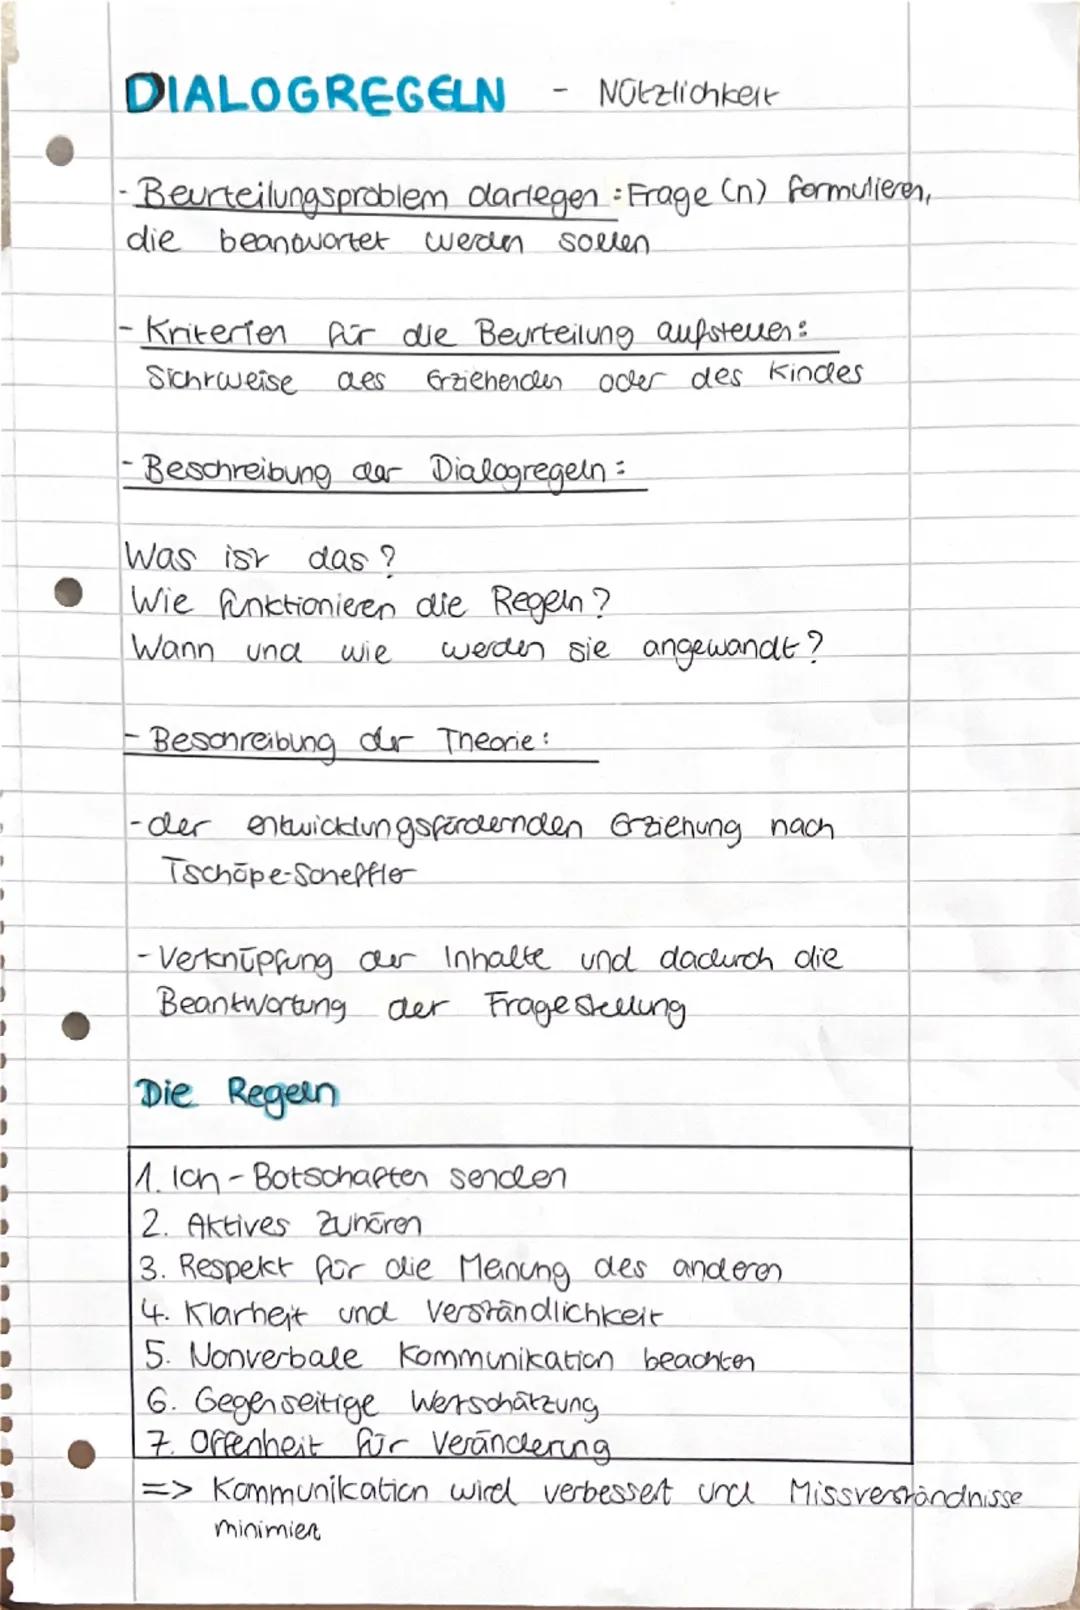 DIALOGREGELN - Nützlichkeit
- Beurteilungsproblem darlegen : Frage (n) formulieren,
die beantwortet werden sollen
- Kriterien für die Beurteilung aufstellen:
Sichtweise des Erziehenden oder des Kindes
- Beschreibung der Dialogregeln:
Was ist das?
Wie funktionieren die Regeln?
Wann und wie werden sie angewandt?
- Beschreibung der Theorie:
- der entwicklungsfördernden Erziehung nach
Tschöpe-Scheffler
- Verknüpfung der Inhalte und dadurch die
Beantwortung der Fragestellung
Die Regeln
1. Ich-Botschaften senden
2. Aktives Zuhören
3. Respekt für die Meinung des anderen
4. Klarheit und Verständlichkeit
5. Nonverbale Kommunikation beachten
6. Gegenseitige Wertschätzung
7. Offenheit für Veränderung
=> Kommunikation wird verbessert und Missverständnisse
minimiert